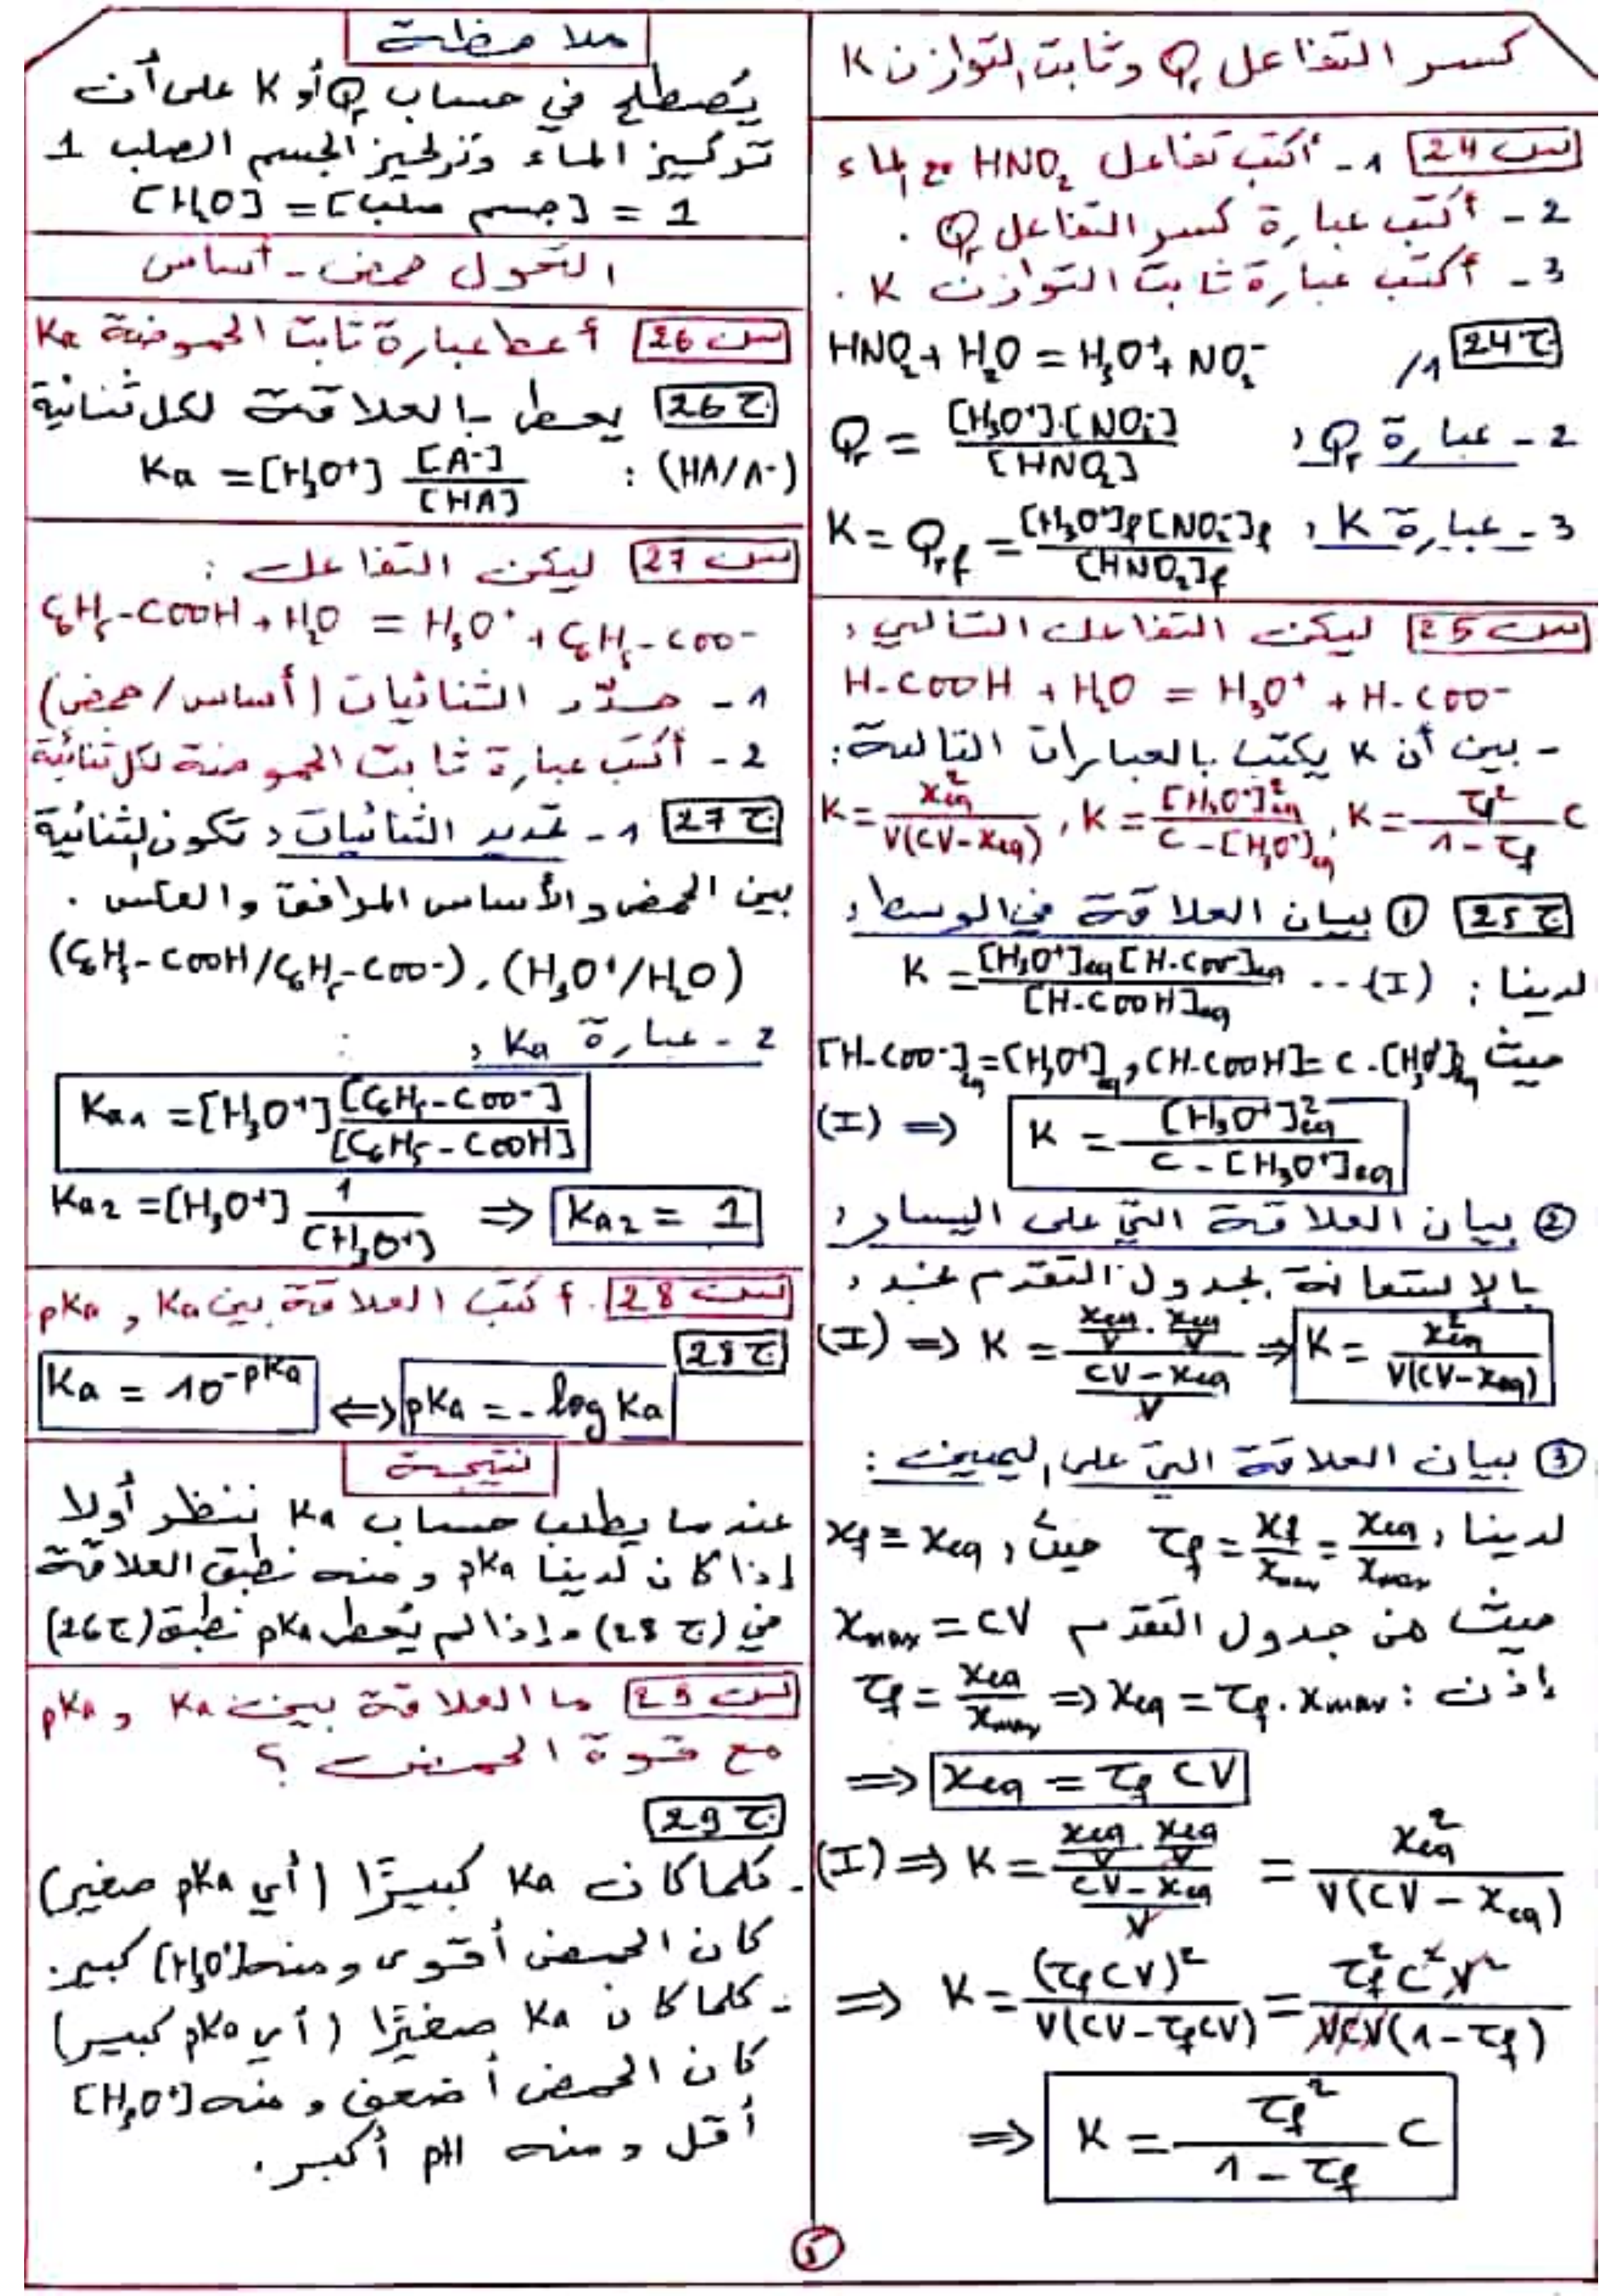 كسر التفاعل Qr وثابت التوازن K
س24 1- أكتب تفاعل HNO₂ مع الماء
2- أكتب عبارة كسر التفاعل Qr .
3- أكتب عبارة ثابت التوازن K .
ج24 1/ HNO₂ + H₂O = H₃O⁺ + NO₂⁻
2- عبارة Qr : Qr = [H₃O⁺].[NO₂⁻] / [HNO₂]
3- عبارة K : K = Qrf = [H₃O⁺]f [NO₂⁻]f / [HNO₂]f
س25 ليكن التفاعل التالي :
H-COOH + H₂O = H₃O⁺ + H-COO⁻
- بين أن K يكتب بالعبارات التالية :
K = xeq² / V(CV-xeq) , K = [H₃O⁺]²eq / C-[H₃O⁺]eq , K = τf² / 1-τf C
ج25 ① بيان العلاقة في الوسط :
لدينا : K = [H₃O⁺]eq [H-COO⁻]eq / [H-COOH]eq ... (I)
حيث [H-COO⁻]eq = [H₃O⁺]eq , [H-COOH] = C-[H₃O⁺]eq
(I) ⇒ K = [H₃O⁺]²eq / C-[H₃O⁺]eq
② بيان العلاقة التي على اليسار :
بالإستعانة بجدول التقدم نجد :
(I) ⇒ K = (xeq/V . xeq/V) / (CV-xeq / V) ⇒ K = xeq² / V(CV-xeq)
③ بيان العلاقة التي على اليمين :
لدينا : τf = xf/xmax = xeq/xmax حيث : xf = xeq
حيث من جدول التقدم xmax = CV
إذن : τf = xeq/xmax ⇒ xeq = τf . xmax
⇒ xeq = τf CV
(I) ⇒ K = (xeq/V . xeq/V) / (CV-xeq / V) = xeq² / V(CV-xeq)
⇒ K = (τf CV)² / V(CV-τf CV) = τf² C² V² / VCV(1-τf)
⇒ K = τf² / 1-τf C
ملاحظة
يُصطلح في حساب Qr أو K على أن
تركيز الماء وتركيز الجسم الصلب 1
[H₂O] = [جسم صلب] = 1
التحول حمض - أساس
س26 أعط عبارة ثابت الحموضة Ka
ج26 يعطى بالعلاقة لكل ثنائية
(HA/A⁻) : Ka = [H₃O⁺] [A⁻] / [HA]
س27 ليكن التفاعل :
C₆H₅-COOH + H₂O = H₃O⁺ + C₆H₅-COO⁻
1- حدّد الثنائيات (أساس/حمض)
2- أكتب عبارة ثابت الحموضة لكل ثنائية
ج27 1- تحديد الثنائيات : تكون الثنائية
بين الحمض والأساس المرافق والعكس .
(C₆H₅-COOH/C₆H₅-COO⁻) , (H₃O⁺/H₂O)
2- عبارة Ka :
Ka₁ = [H₃O⁺] [C₆H₅-COO⁻] / [C₆H₅-COOH]
Ka₂ = [H₃O⁺] 1 / [H₃O⁺] ⇒ Ka₂ = 1
س28 . أكتب العلاقة بين Ka و pKa
ج28
Ka = 10^-pKa ⇔ pKa = -log Ka
نتيجة
عندما يطلب حساب Ka ننظر أولا
إذا كان لدينا pKa ومنه نطبق العلاقة
في (ج28) وإذا لم يُعط pKa نطبق (ج26)
س29 ما العلاقة بين Ka و pKa
مع قوة الحمض ؟
ج29
- كلما كان Ka كبيرًا (أي pKa صغير)
كان الحمض أقوى ومنه [H₃O⁺] كبير.
- كلما كان Ka صغيرًا (أي pKa كبير)
كان الحمض أضعف ومنه [H₃O⁺]
أقل ومنه pH أكبر.
5